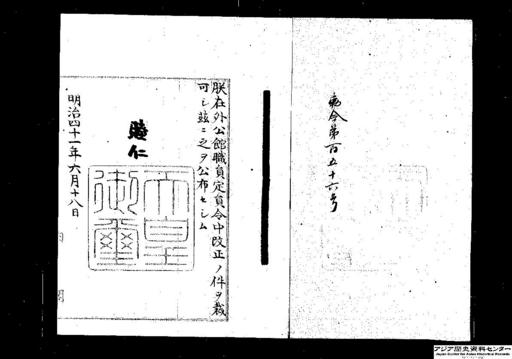 勅令第百五十六号
朕在外公館職員定員令中改正ノ件ヲ裁
可シ茲ニ之ヲ公布セシム
睦仁
天皇御璽
明治四十一年六月十八日
内閣
アジア歴史資料センター
Japan Center for Asian Historical Records